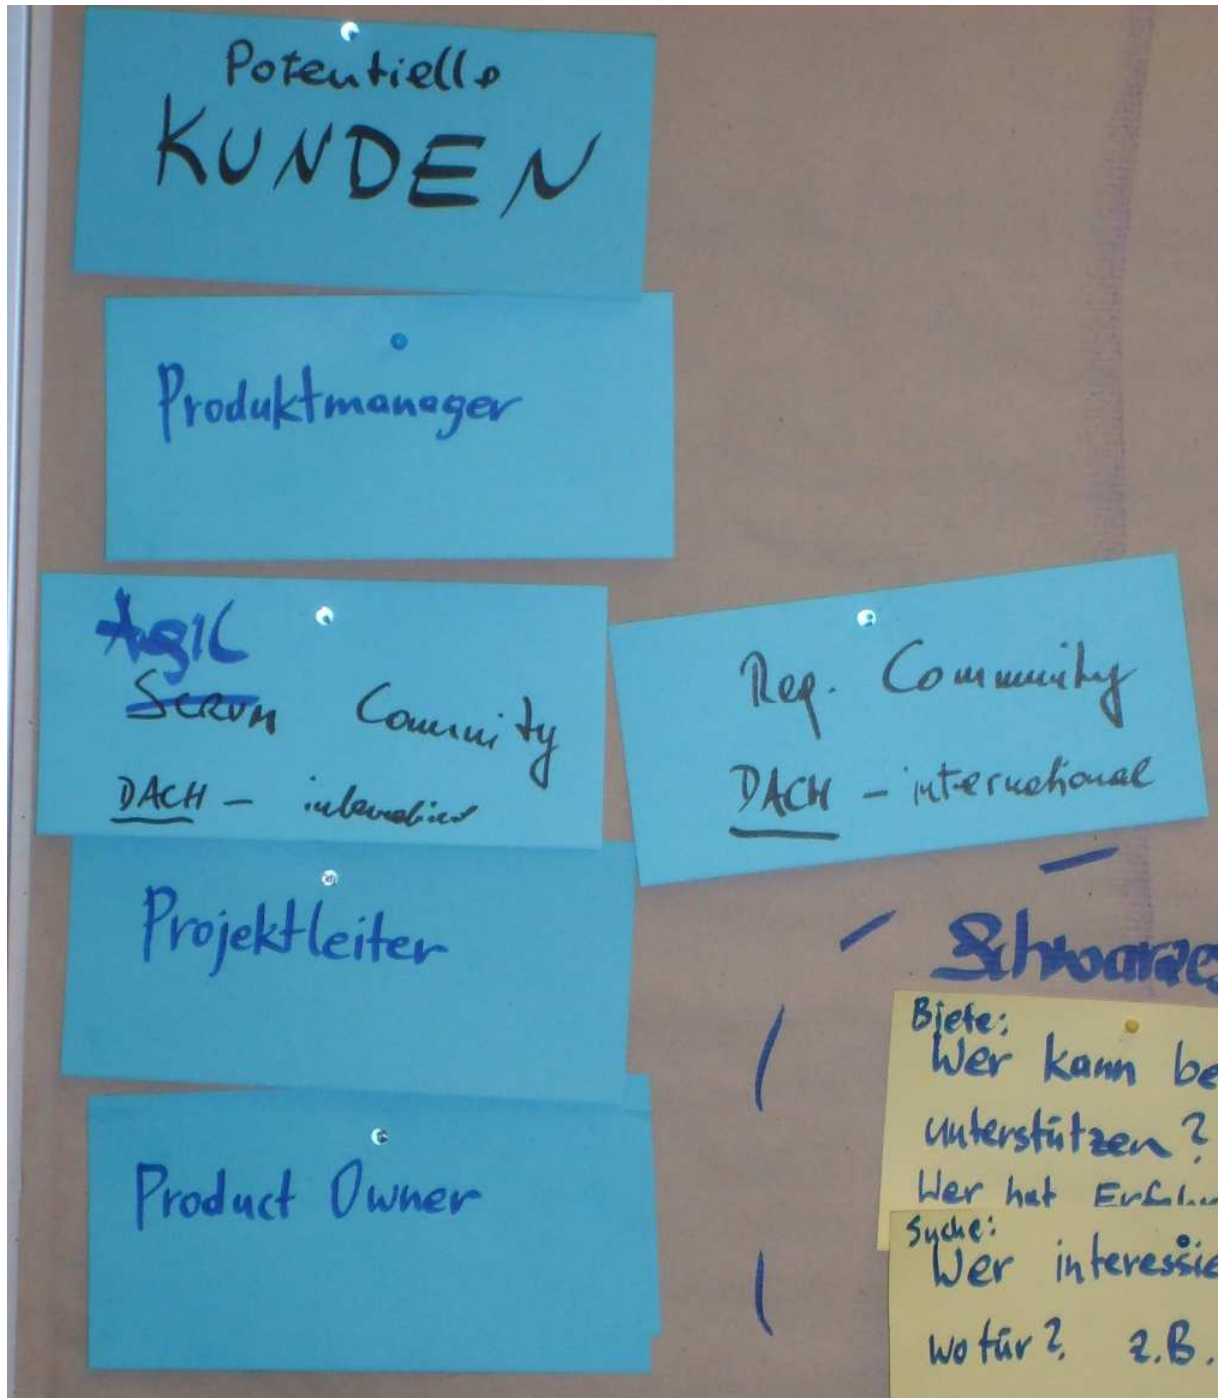 Potentielle
KUNDEN
Produktmanager
Agil
Scrum Community
DACH – international
Req. Community
DACH – international
Projektleiter
Product Owner
Schwarzes
Biete:
Wer kann be
unterstützen?
Wer hat Erfahru
Suche:
Wer interessie
wofür? z.B.